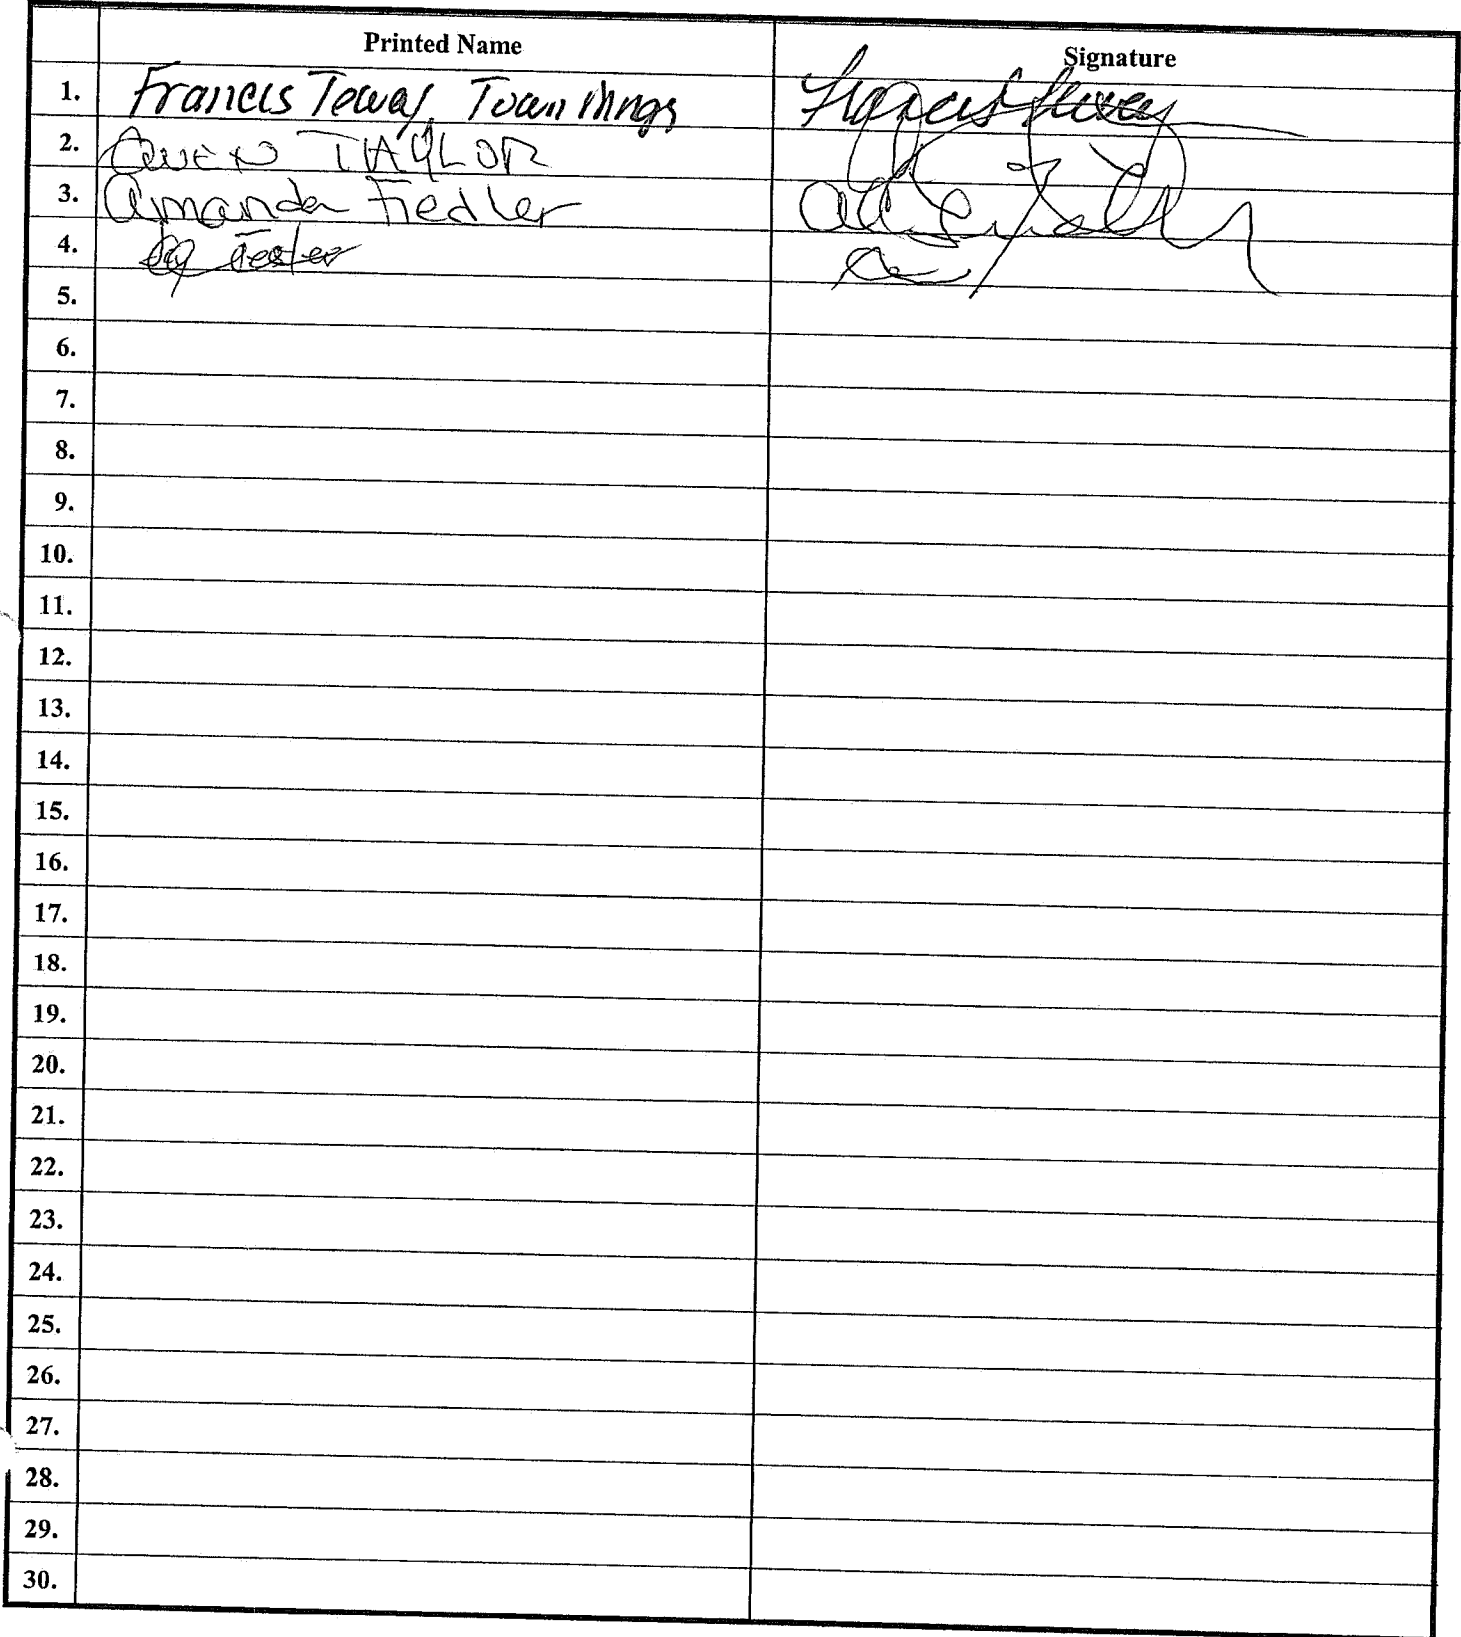 Printed Name Signature
1. Francis Teway, Town Mngr Francis Teway
2. OWEN TAYLOR
3. Amanda Fiedler
4.
5.
6.
7.
8.
9.
10.
11.
12.
13.
14.
15.
16.
17.
18.
19.
20.
21.
22.
23.
24.
25.
26.
27.
28.
29.
30.